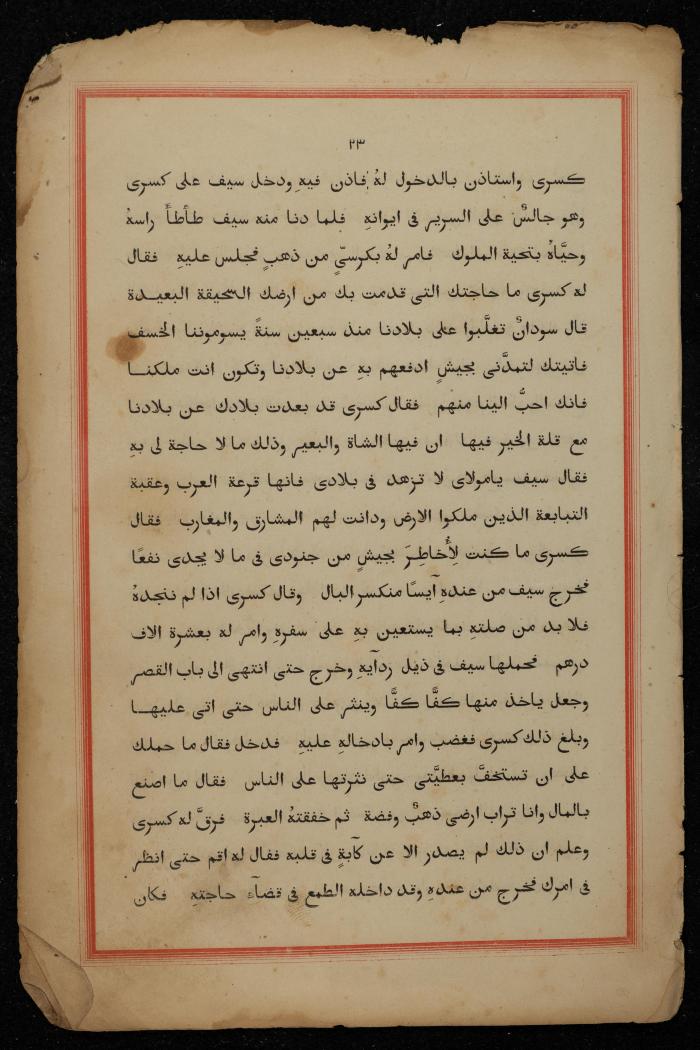 ٢٣
كسرى واستاذن بالدخول لهُ فاذن فيهِ ودخل سيف على كسرى
وهو جالسٌ على السرير فى ايوانهِ فلما دنا منه سيف طأطأَ راسهُ
وحيَّاهُ بتحية الملوك فامر لهُ بكرسىّ من ذهبٍ فجلس عليهِ فقال
له كسرى ما حاجتك التى قدمت بك من ارضك السحيقة البعيدة
قال سودانٌ تغلَّبوا على بلادنا منذ سبعين سنةً يسوموننا الخسف
فاتيتك لتمدَّنى بجيشٍ ادفعهم بهِ عن بلادنا وتكون انت ملكنا
فانك احبُّ الينا منهم فقال كسرى قد بعدت بلادك عن بلادنا
مع قلة الخير فيها ان فيها الشاة والبعير وذلك ما لا حاجة لى بهِ
فقال سيف يامولاى لا تزهد فى بلادى فانها قرعة العرب وعقبة
التبابعة الذين ملكوا الارض ودانت لهم المشارق والمغارب فقال
كسرى ما كنت لِأُخاطِرَ بجيشٍ من جنودى فى ما لا يجدى نفعًا
فخرج سيف من عندهِ آيسًا منكسر البال وقال كسرى اذا لم ننجدهُ
فلا بد من صلتهِ بما يستعين بهِ على سفرهِ وامر له بعشرة الاف
درهم فحملها سيف فى ذيل ردآيهِ وخرج حتى انتهى الى باب القصر
وجعل ياخذ منها كفًّا كفًّا وينثر على الناس حتى اتى عليها
وبلغ ذلك كسرى فغضب وامر بادخالهِ عليهِ فدخل فقال ما حملك
على ان تستخفَّ بعطيَّتى حتى نثرتها على الناس فقال ما اصنع
بالمال وانا تراب ارضى ذهبٌ وفضة ثم خفقتهُ العبرة فرقَّ له كسرى
وعلم ان ذلك لم يصدر الا عن كآبةٍ فى قلبه فقال له اقم حتى انظر
فى امرك فخرج من عندهِ وقد داخله الطمع فى قضآء حاجتهِ فكان